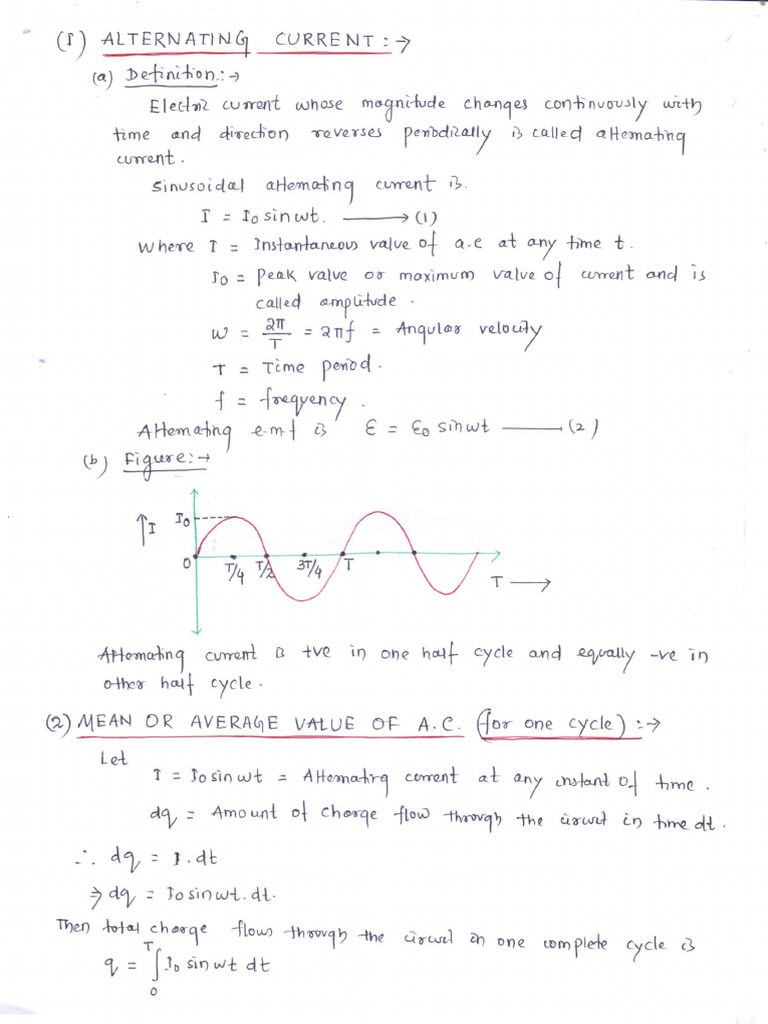 (1) ALTERNATING CURRENT :→
(a) Definition :→
Electric current whose magnitude changes continuously with
time and direction reverses periodically is called alternating
current.
Sinusoidal alternating current is.
I = I₀ sin wt. ——→ (1)
Where I = Instantaneous value of a.c at any time t.
I₀ = peak value or maximum value of current and is
called amplitude.
w = 2π/T = 2πf = Angular velocity
T = Time period.
f = frequency.
Alternating e.m.f is ε = ε₀ sin wt ——— (2)
(b) Figure :→
↑ I I₀
0 T/4 T/2 3T/4 T
T →
Alternating current is +ve in one half cycle and equally -ve in
other half cycle.
(2) MEAN OR AVERAGE VALUE OF A.C. (for one cycle) :→
Let
I = I₀ sin wt = Alternating current at any instant of time.
dq = Amount of charge flow through the circuit in time dt.
∴ dq = I.dt
⇒ dq = I₀ sin wt. dt.
Then total charge flows through the circuit in one complete cycle is
q = ∫₀ᵀ I₀ sin wt dt